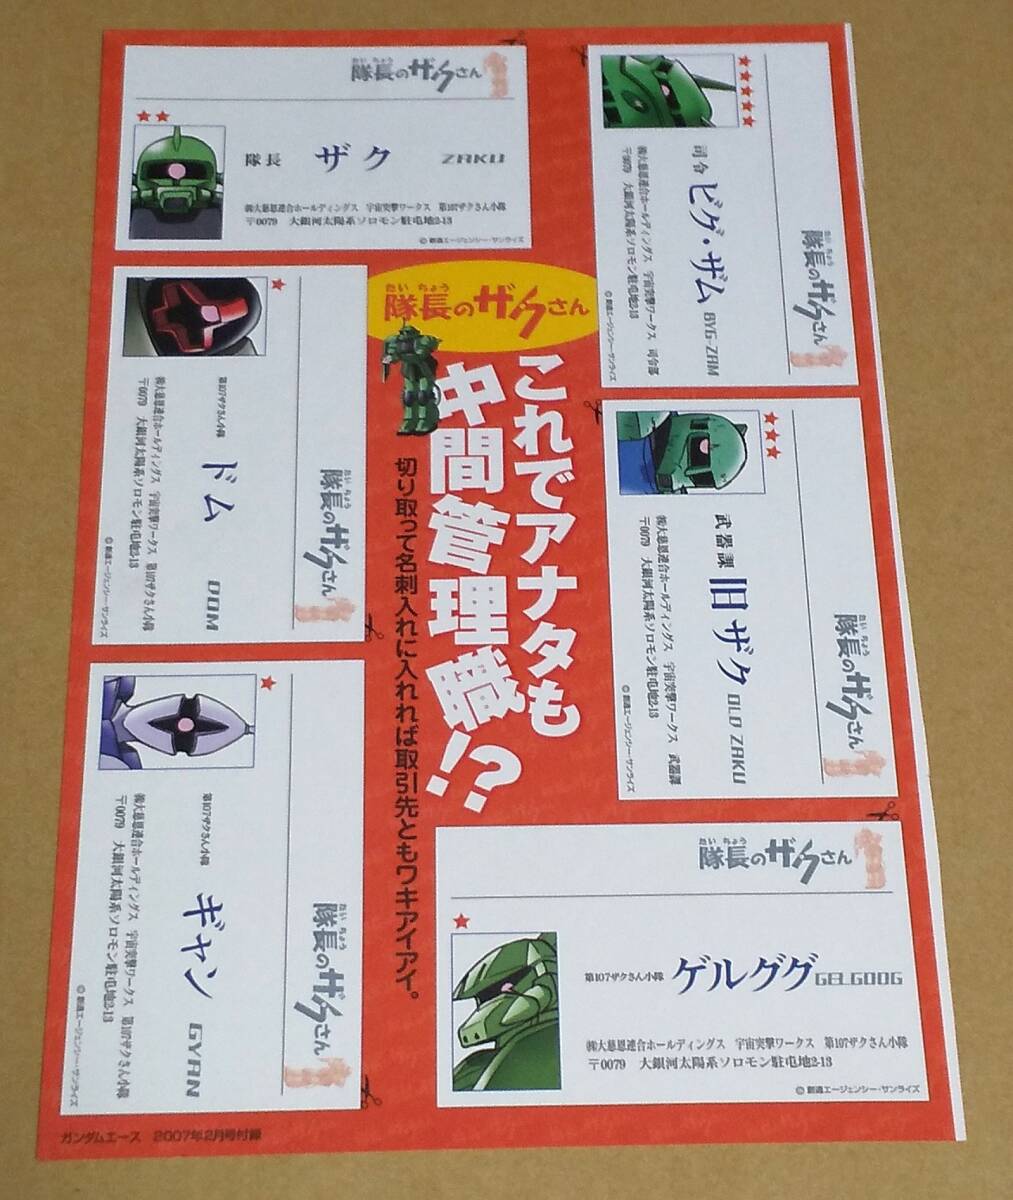 たいちょう
隊長のザクさん
★★
隊長 ザク ZAKU
㈱大慈恩連合ホールディングス 宇宙突撃ワークス 第107ザクさん小隊
〒0079 大銀河太陽系ソロモン駐屯地2-13
© 創通エージェンシー・サンライズ
たいちょう
隊長のザクさん
★★★★★
司令 ビグ・ザム BYG-ZAM
㈱大慈恩連合ホールディングス 宇宙突撃ワークス 司令部
〒0079 大銀河太陽系ソロモン駐屯地2-13
© 創通エージェンシー・サンライズ
たいちょう
隊長のザクさん
これでアナタも
中間管理職!?
切り取って名刺入れに入れれば取引先ともワキアイアイ。
たいちょう
隊長のザクさん
★
第107ザクさん小隊 ドム DOM
㈱大慈恩連合ホールディングス 宇宙突撃ワークス 第107ザクさん小隊
〒0079 大銀河太陽系ソロモン駐屯地2-13
© 創通エージェンシー・サンライズ
たいちょう
隊長のザクさん
★★★
武器課 旧ザク OLD ZAKU
㈱大慈恩連合ホールディングス 宇宙突撃ワークス 武器課
〒0079 大銀河太陽系ソロモン駐屯地2-13
© 創通エージェンシー・サンライズ
たいちょう
隊長のザクさん
★
第107ザクさん小隊 ギャン GYAN
㈱大慈恩連合ホールディングス 宇宙突撃ワークス 第107ザクさん小隊
〒0079 大銀河太陽系ソロモン駐屯地2-13
© 創通エージェンシー・サンライズ
たいちょう
隊長のザクさん
★
第107ザクさん小隊 ゲルググ GELGOOG
㈱大慈恩連合ホールディングス 宇宙突撃ワークス 第107ザクさん小隊
〒0079 大銀河太陽系ソロモン駐屯地2-13
© 創通エージェンシー・サンライズ
ガンダムエース 2007年2月号付録